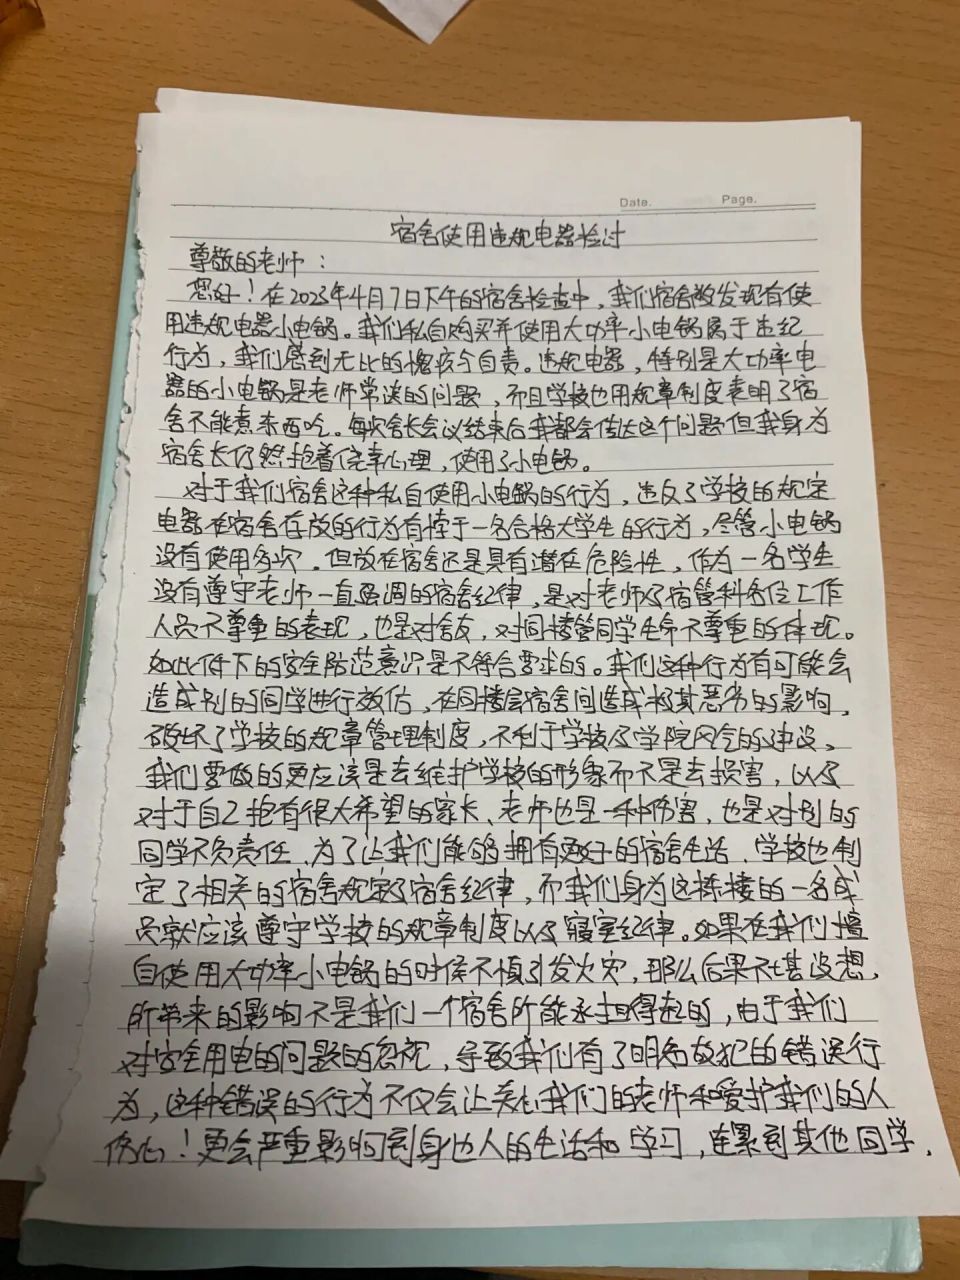 Date. Page.
宿舍使用违规电器检讨
尊敬的老师：
您好！在2023年4月7日下午的宿舍检查中，我们宿舍被发现有使
用违规电器小电锅。我们私自购买并使用大功率小电锅属于违纪
行为，我们感到无比的愧疚自责。违规电器，特别是大功率电
器的小电锅是老师常谈的问题，而且学校也用规章制度表明了宿
舍不能煮东西吃。每次舍长会议结束后我都会传达这个问题但我身为
宿舍长仍然抱着侥幸心理，使用了小电锅。
对于我们宿舍这种私自使用小电锅的行为，违反了学校的规定
电器在宿舍存放的行为有悖于一名合格大学生的行为，尽管小电锅
没有使用多次，但放在宿舍还是具有潜在危险性，作为一名学生
没有遵守老师一直强调的宿舍纪律，是对老师及宿管科各位工作
人员不尊重的表现，也是对舍友，对同楼管同学生命不尊重的体现。
如此低下的安全防范意识是不符合要求的。我们这种行为有可能会
造成别的同学进行效仿，在同楼层宿舍间造成极其恶劣的影响，
破坏了学校的规章管理制度，不利于学校及学院风气的建设。
我们要做的更应该是去维护学校的形象而不是去损害，以及
对于自己抱有很大希望的家长、老师也是一种伤害，也是对别的
同学不负责任，为了让我们能够拥有更好的宿舍生活，学校也制
定了相关的宿舍规定及宿舍纪律，而我们身为这栋楼的一名成
员就应该遵守学校的规章制度以及寝室纪律。如果在我们擅
自使用大功率小电锅的时候不慎引发火灾，那么后果不堪设想，
所带来的影响不是我们一个宿舍所能承担得起的，由于我们
对安全用电的问题的忽视，导致我们有了明知故犯的错误行
为，这种错误的行为不仅会让关心我们的老师和爱护我们的人
伤心！更会严重影响到身边人的生活和学习，连累到其他同学，